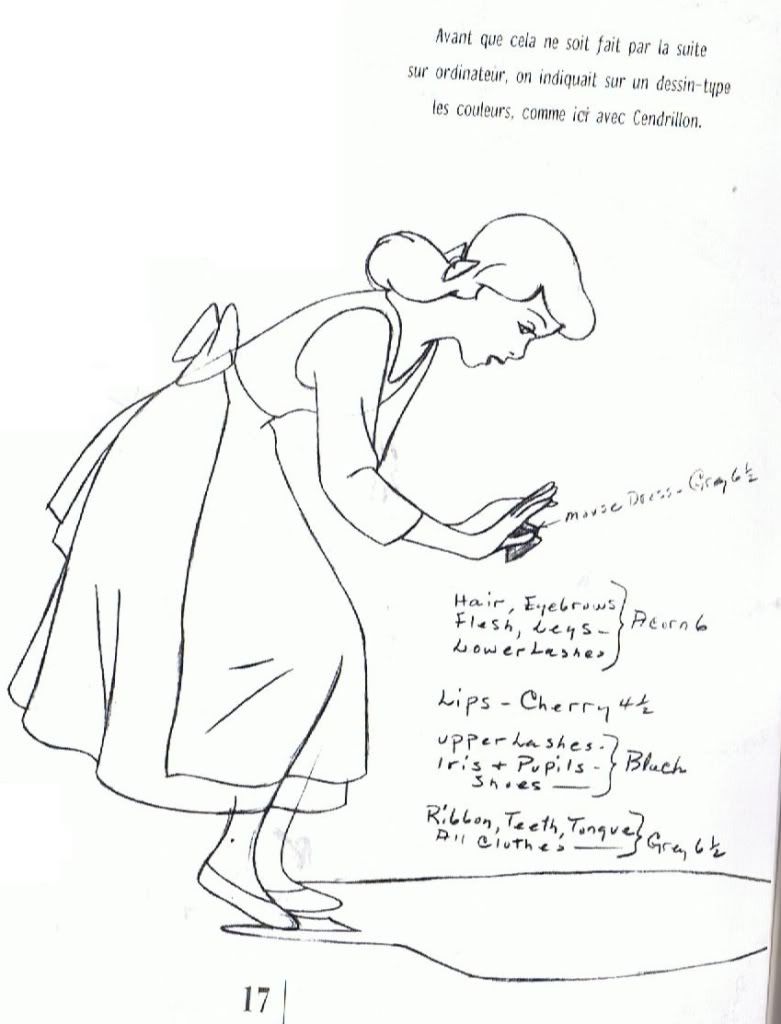 Avant que cela ne soit fait par la suite
sur ordinateur, on indiquait sur un dessin-type
les couleurs, comme ici avec Cendrillon.
mouse Dress - Gray 6 1/2
Hair, Eyebrows
Flesh, Legs - } Acorn 6
Lower Lashes
Lips - Cherry 4 1/2
upper Lashes -
Iris + Pupils - } Black
Shoes —
Ribbon, Teeth, Tongue
All Clothes — } Gray 6 1/2
17